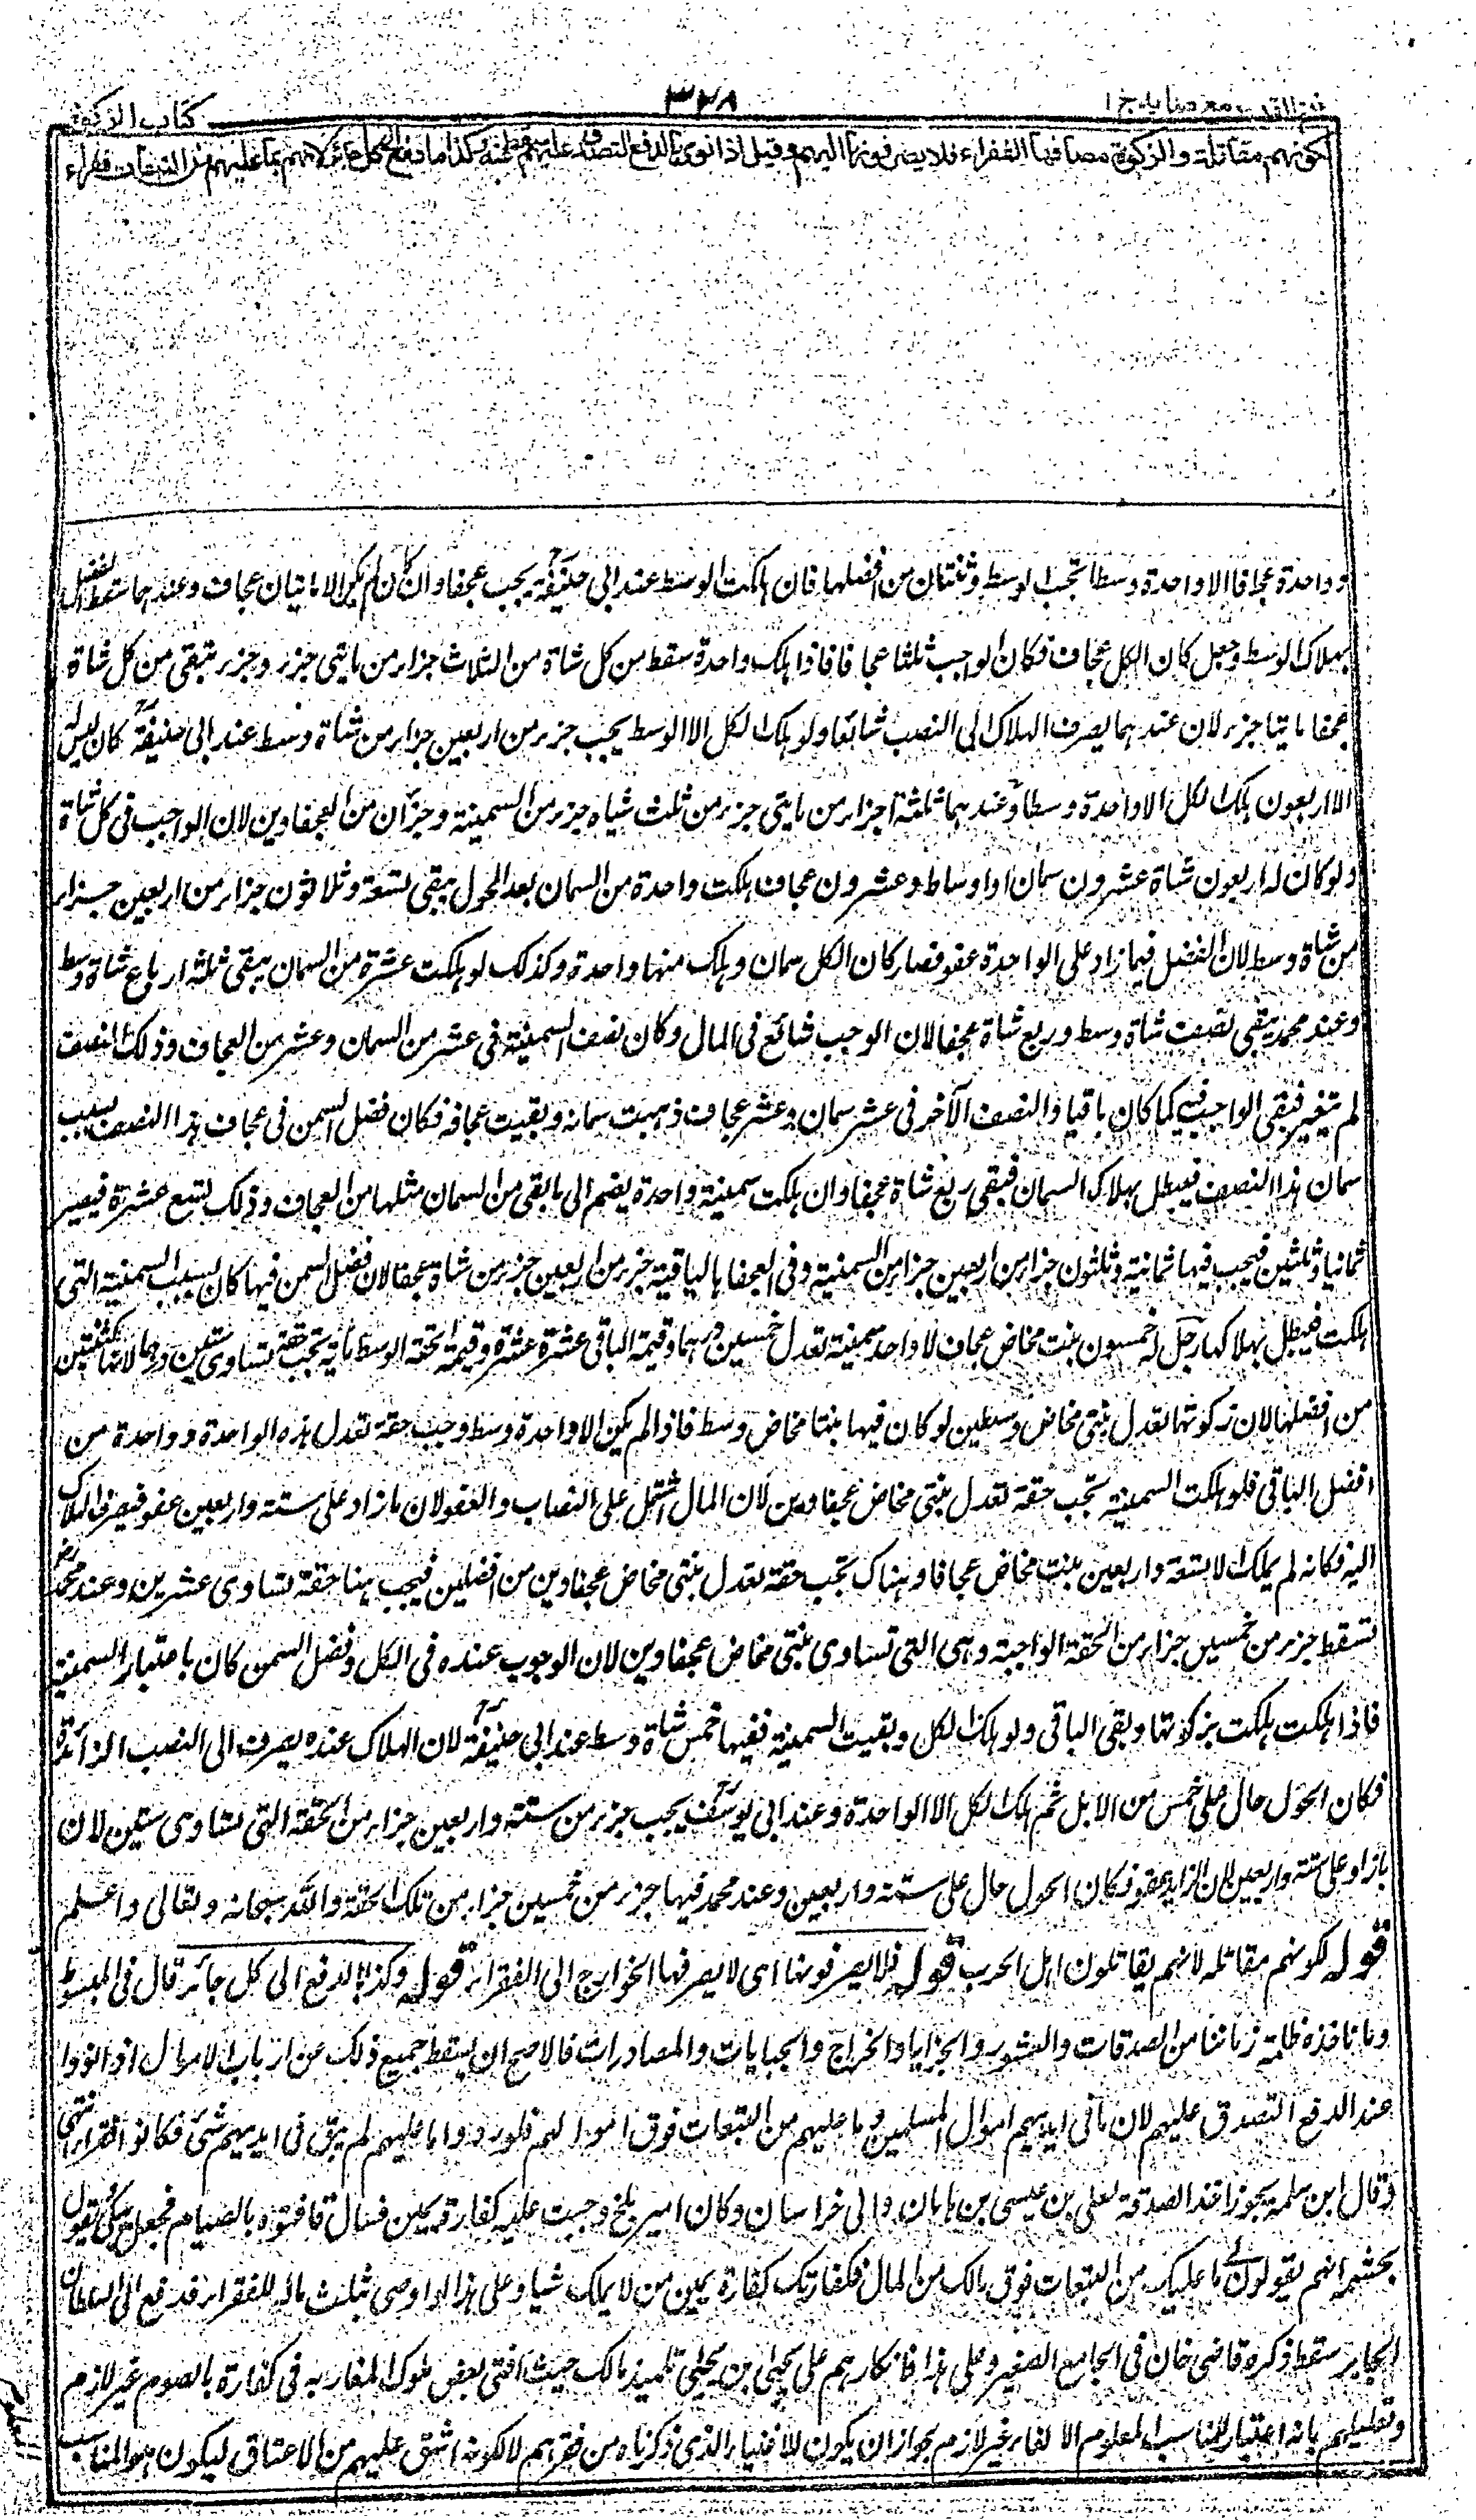 فتح القدير مع هدايه ج ١
٣٣٨
كتاب الزكوة
لكونهم مقاتلة والزكوة مصرفها الفقراء فلا يصرفونها اليهم وقيل اذا نوى بالدفع التصدق عليهم سقط عنه وكذا ما دفع الى كل جائر لانهم بما عليهم من التبعات فقراء
وواحدة عجافا الا واحدة وسطا تجب الوسط وثنتان من افضلها فان هلكت الوسط عند ابى حنيفة يجب عجفاوان كان لم يكن الا مايتان عجاف وعندهما سقط الفضل
بهلاك الوسط وجعل كان الكل عجاف فكان الواجب ثلثا عجافا فاذا هلك واحدة سقط من كل شاة من الثلاث جزء من مايتى جزء وجزء تبقى من كل شاة
عجفا مايتا جزء لان عندهما يصرف الهلاك الى النصب شائعا ولو هلك الكل الا الوسط يجب جزء من اربعين جزء من شاة وسط عند ابى حنيفة كان ليس له
الا اربعون هلك الكل الا واحدة وسطا وعندهما ثلثة اجزاء من مايتى جزء من ثلث شياه جزء من السمينة وجزآن من العجفاوين لان الواجب فى كل شاة
ولو كان له اربعون شاة عشرون سمان او اوساط وعشرون عجاف هلكت واحدة من السمان بعد الحول يبقى تسعة وثلاثون جزء من اربعين جزء
من شاة وسط لان الفضل فيما زاد على الواحدة عفو فصار كان الكل سمان وهلك منها واحدة وكذلك لو هلكت عشرة من السمان يبقى ثلثة ارباع شاة وسط
وعند محمد يبقى نصف شاة وسط وربع شاة عجفا لان الوجب شائع فى المال وكان نصف السمينة فى عشر من السمان وعشر من العجاف وذلك النصف
لم يتغير فبقى الواجب فيه كما كان باقيا والنصف الآخر فى عشر سمان وعشر عجاف ذهبت سمانه وبقيت عجافه فكان فضل السمن فى عجاف هذا النصف بسبب
سمان هذا النصف فيبطل بهلاك السمان فبقى ربع شاة عجفا وان هلكت سمينة واحدة يضم الى ما بقى من السمان مثلها من العجاف وذلك تسع عشرة فيصير
ثمانيا وثلثين فيجب فيها ثمانية وثلثون جزء من اربعين جزء من السمينة وفى العجفا الباقية جزء من اربعين جزء من شاة عجفا لان فضل السمن فيها كان بسبب السمينة التى
هلكت فيبطل بهلاكها رجل له خمسون بنت مخاض عجاف الا واحدة سمينة تعدل خمسين درهما وقيمة الباقى عشرة عشرة وقيمة الحقة الوسط مائة تجب حقة تساوى ستين درهما لانها كثنتين
من افضلها لان زكوتها تعدل بنتى مخاض وسطين لو كان فيها بنتا مخاض وسط فاذا لم يكن الا واحدة وسط وجب حقة تعدل هذه الواحدة وواحدة من
افضل الباقى فلو هلكت السمينة تجب حقة تعدل بنتى مخاض عجفاوين لان المال اشتمل على النصاب والعفو لان ما زاد على ستة واربعين عفو فيصرف الهلاك
اليه فكانه لم يملك الا تسعة واربعين بنت مخاض عجافا وهناك تجب حقة تعدل بنتى مخاض عجفاوين من افضلهن فيجب هنا حقة تساوى عشرين وعند محمد
تسقط جزء من خمسين جزء من الحقة الواجبة وهى التى تساوى بنتى مخاض عجفاوين لان الوجوب عنده فى الكل وفضل السمن كان باعتبار السمينة
فاذا هلكت هلكت بزكوتها وبقى الباقى ولو هلك الكل وبقيت السمينة ففيها خمس شاة وسط عند ابى حنيفة لان الهلاك عنده يصرف الى النصب الزائدة
فكان الحول حال على خمس من الابل ثم هلك الكل الا الواحدة وعند ابى يوسف يجب جزء من ستة واربعين جزء من الحقة التى تساوى ستين لان
ما زاد على ستة واربعين لان الزايد عفو فكان الحول حال على ستة واربعين وعند محمد فيها جزء من خمسين جزء من تلك الحقة والله سبحانه وتعالى واعلم
قوله لكونهم مقاتلة لانهم يقاتلون اهل الحرب قوله فلا يصرفونها اى لا يصرفها الخوارج الى الفقراء قوله وكذا الدفع الى كل جائر قال فى المبسوط
وما ياخذه ظلمة زماننا من الصدقات والعشور والجزايا والخراج والجبايات والمصادرات فالاصح ان يسقط جميع ذلك عن ارباب الاموال اذا نووا
عند الدفع التصدق عليهم لان ما فى ايديهم اموال المسلمين وما عليهم من التبعات فوق اموالهم فلو ردوا ما عليهم لم يبق فى ايديهم شئ فكانوا فقراء انتهى
وقال ابن سلمة يجوز اخذ الصدقة لعلى بن عيسى بن ماهان والى خراسان وكان امير بلخ وجبت عليه كفارة يمين فسال فافتوه بالصيام فجعل يبكى ويقول
لحشمه انهم يقولون لى ما عليك من التبعات فوق مالك من المال فكفارتك كفارة يمين من لا يملك شيا وعلى هذا لو اوصى بثلث ماله للفقراء فدفع الى السلطان
الجاير سقط ذكره قاضى خان فى الجامع الصغير وعلى هذا فانكارهم على يحيى بن يحيى تلميذ مالك حيث افتى بعض ملوك المغاربه فى كفارة بالصوم غير لازم
وتعليلهم بانه اعتبار للمناسب المعلوم الالغاء غير لازم لجواز ان يكون للاعتبار الذى ذكرناه من فقرهم لا لكونه اشق عليهم من الاعتاق ليكون هو المناسب